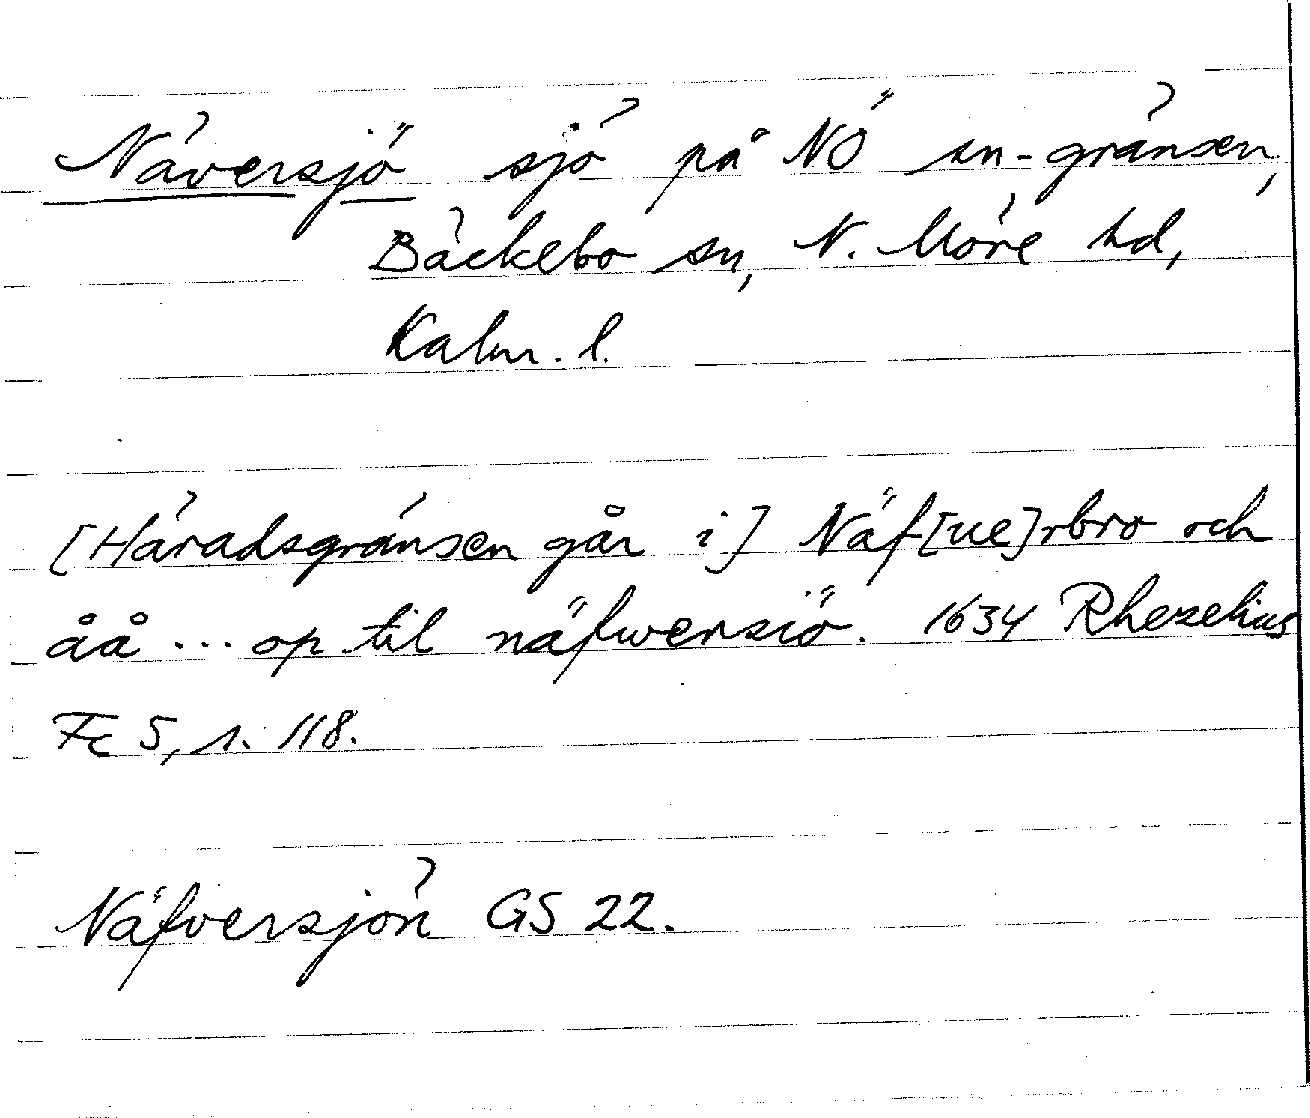 Näversjö sjö på NÖ sn-gränsen,
Bäckebo sn, N. Möre hd,
Kalm. l.
[Häradsgränsen går i] Näf[ue]rbro och
åå ... op til näfwersiö. 1634 Rhezelius
Fc 5, s. 118.
Näfversjön GS 22.